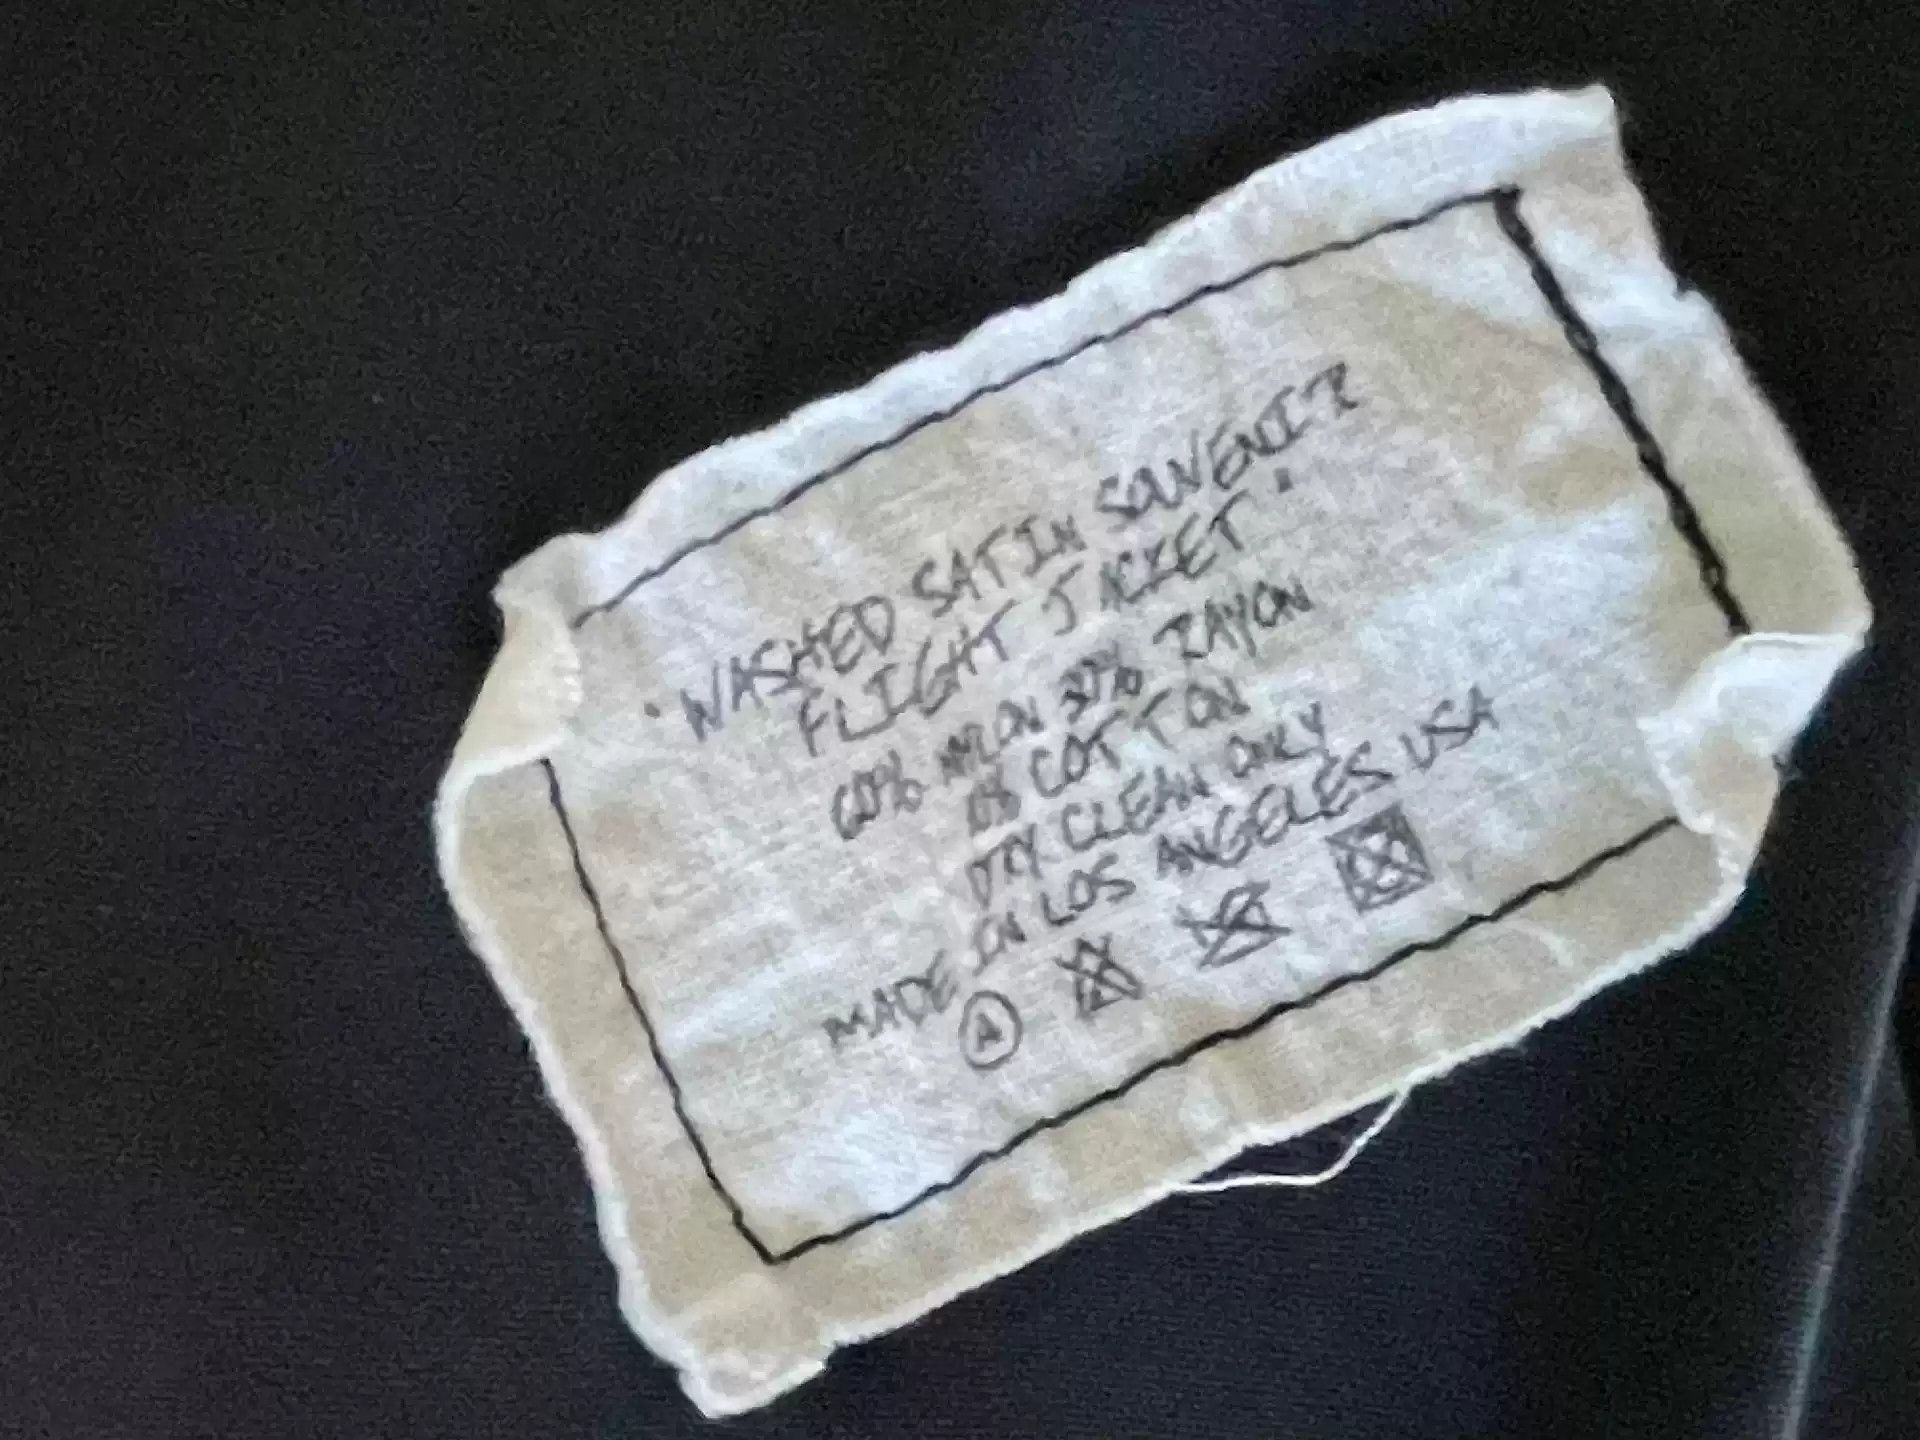 "WASHED SATIN SOUVENIR
FLIGHT JACKET"
60% NYLON 30% RAYON
COTTON
DRY CLEAN ONLY
MADE IN LOS ANGELES USA
A